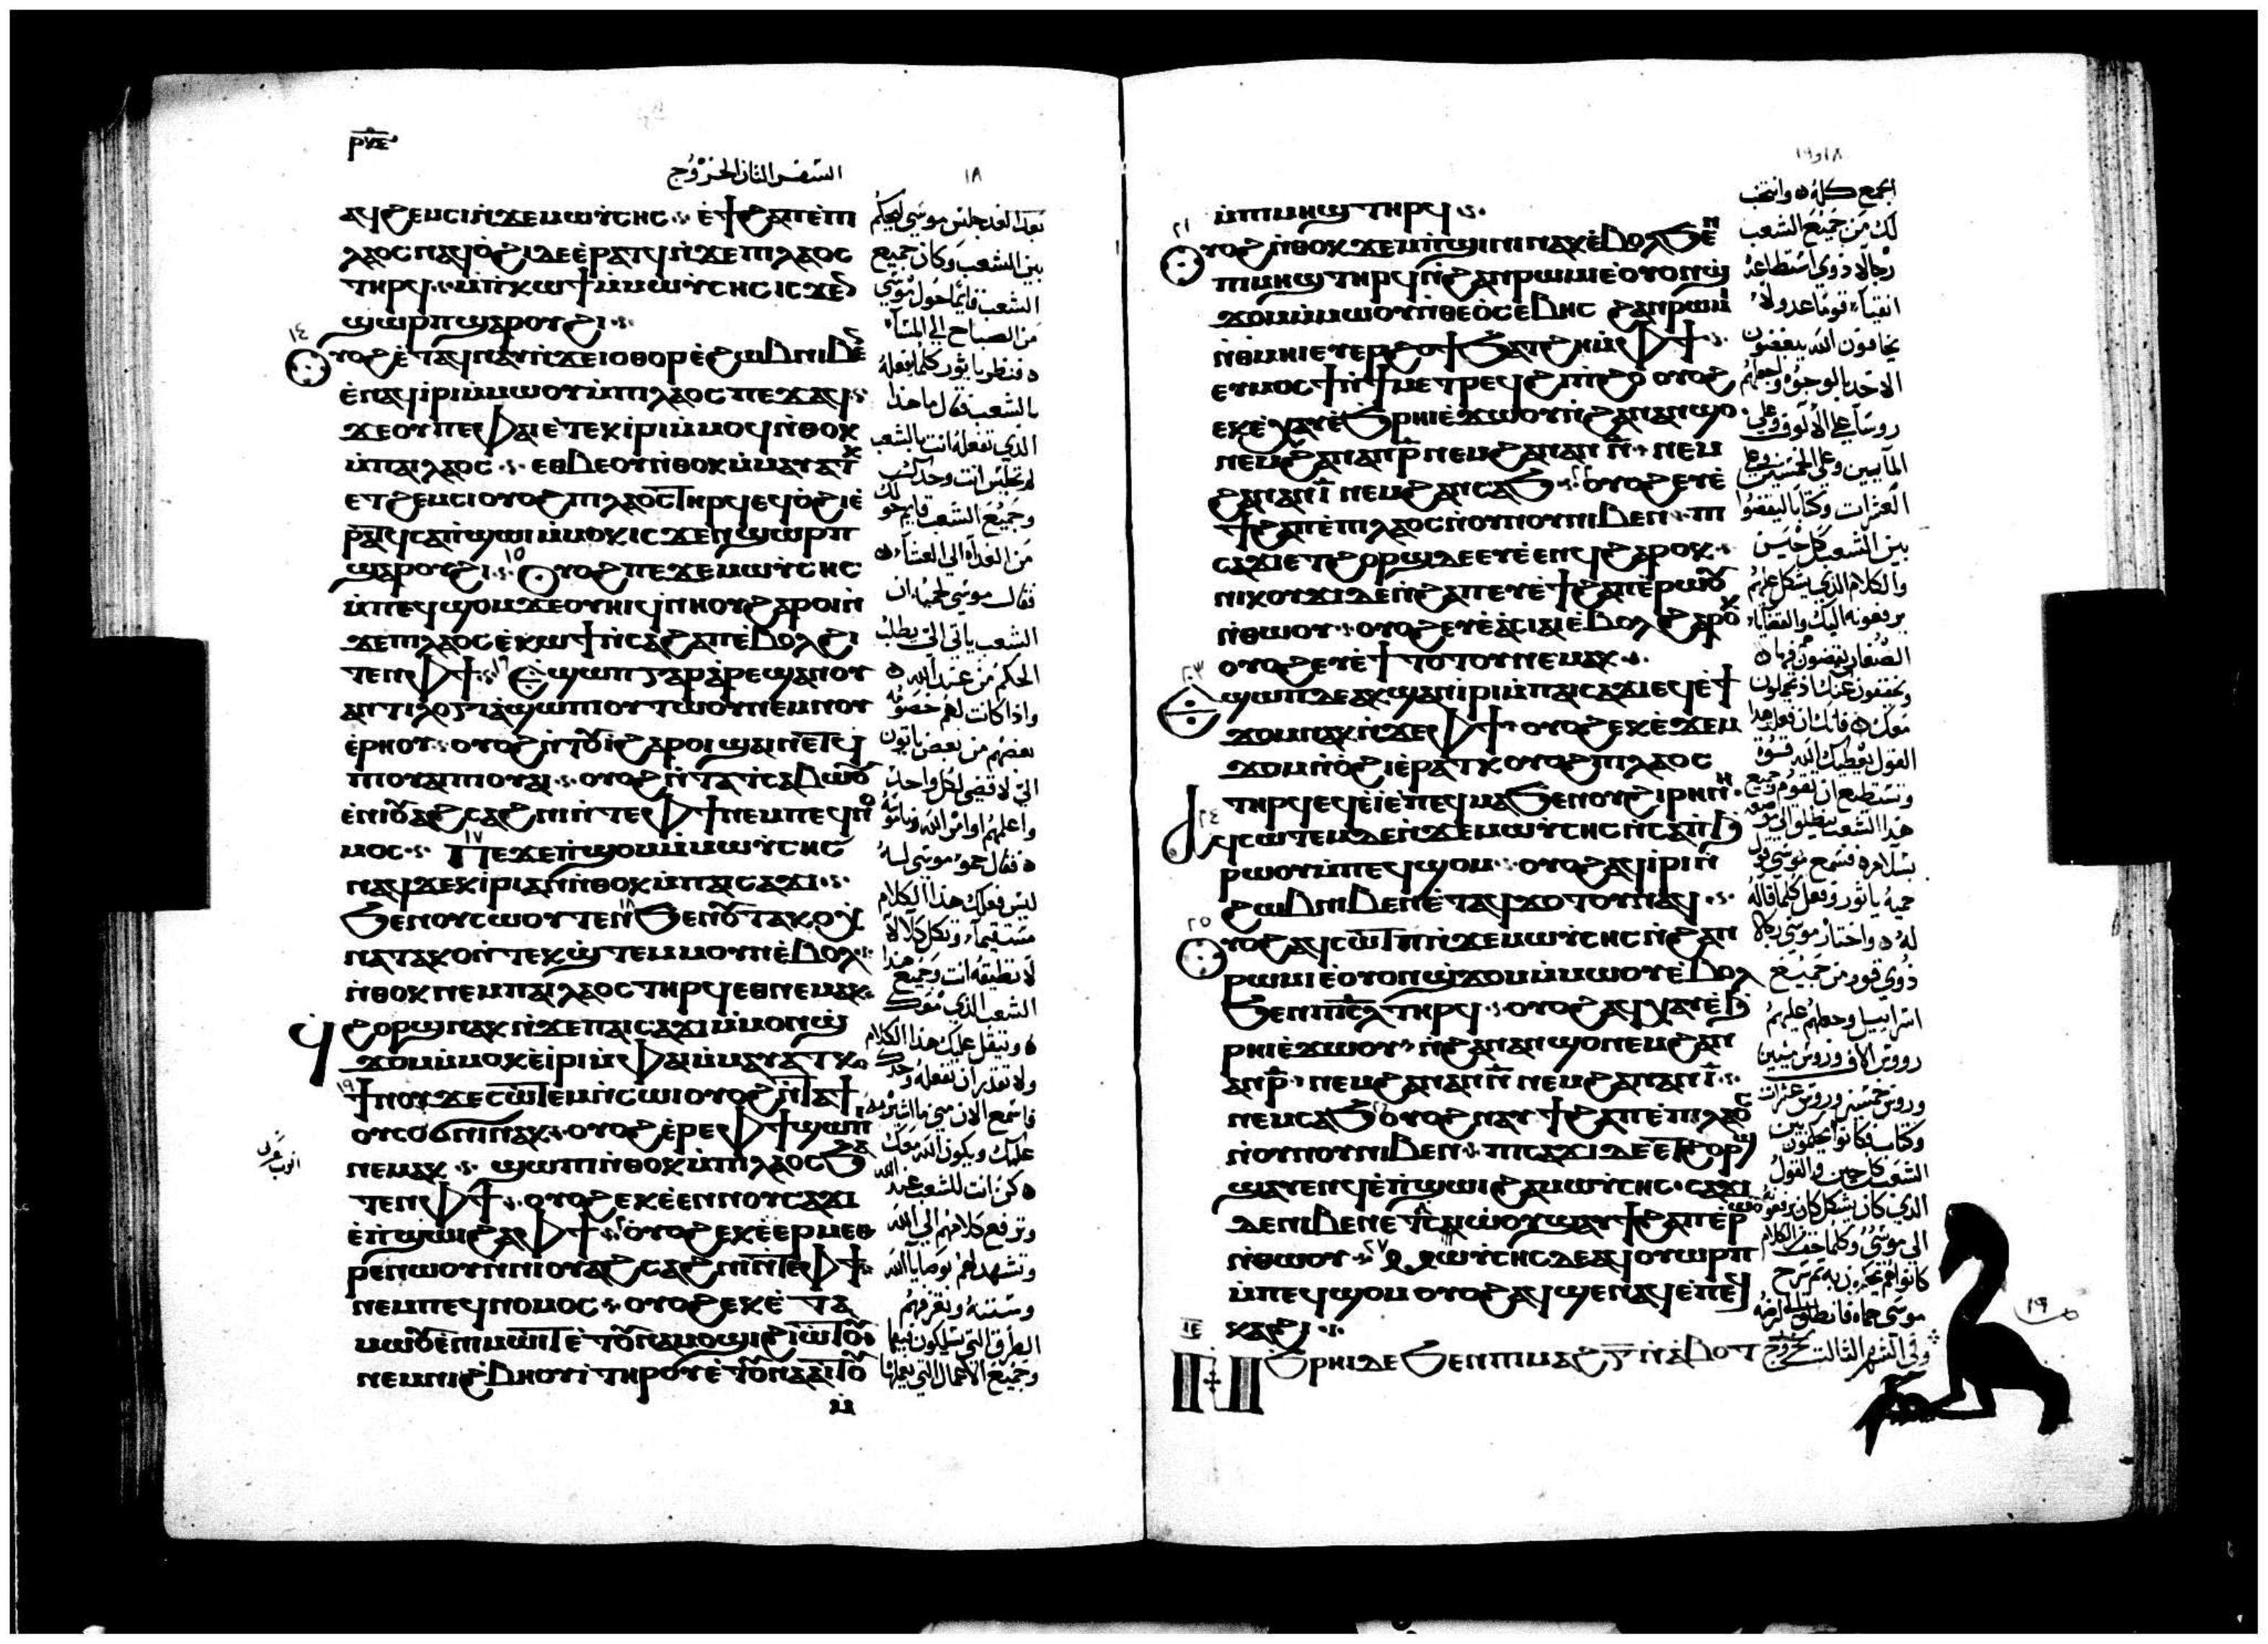 ⲣⲛⲉ
السفر الثاني الخروج
١٨
ⲁϥϩⲉⲙⲥⲓ ⲛ̀ϫⲉ ⲙⲱⲩⲥⲏⲥ ⲉ̀ϯϩⲁⲡ ⲉ̀ⲡⲓ
ⲗⲁⲟⲥ ⲛⲁϥⲟ̀ϩⲓ ⲇⲉ ⲉ̀ⲣⲁⲧϥ ⲛ̀ϫⲉ ⲡⲓⲗⲁⲟⲥ
ⲧⲏⲣϥ ⲙ̀ⲡⲕⲱϯ ⲙ̀ⲙⲱⲩⲥⲏⲥ ⲓⲥϫⲉⲛ
ϣⲱⲣⲡ ϣⲁ ⲣⲟⲩϩⲓ
١٤
ⲟⲩⲟϩ ⲉ̀ⲧⲁϥⲛⲁⲩ ⲛ̀ϫⲉ ⲓⲟⲑⲟⲣ ⲉ̀ϩⲱⲃ ⲛⲓⲃⲉⲛ
ⲉ̀ⲛⲁϥⲓ̀ⲣⲓ ⲙ̀ⲙⲱⲟⲩ ⲙ̀ⲡⲓⲗⲁⲟⲥ ⲡⲉϫⲁϥ
ϫⲉ ⲟⲩ ⲡⲉ ⲫⲁⲓ ⲉ̀ⲧⲉⲕⲓ̀ⲣⲓ ⲙ̀ⲙⲟϥ ⲛ̀ⲑⲟⲕ
ⲙ̀ⲡⲁⲓⲗⲁⲟⲥ ⲉⲑⲃⲉⲟⲩ ⲛ̀ⲑⲟⲕ ⲙ̀ⲙⲁⲩⲁⲧⲕ
ⲉⲧϩⲉⲙⲥⲓ ⲟⲩⲟϩ ⲡⲓⲗⲁⲟⲥ ⲧⲏⲣϥ ⲉϥⲟ̀ϩⲓ ⲉ̀
ⲣⲁⲧϥ ⲥⲁⲡ̀ϣⲱⲓ ⲙ̀ⲙⲟⲕ ⲓⲥϫⲉⲛ ϣⲱⲣⲡ
ϣⲁ ⲣⲟⲩϩⲓ ١٥ ⲟⲩⲟϩ ⲡⲉϫⲉ ⲙⲱⲩⲥⲏⲥ
ⲙ̀ⲡⲉϥϣⲟⲙ ϫⲉ ⲟⲩⲏⲓ ϥ̀ⲛⲏⲟⲩ ϩⲁⲣⲟⲓ ⲛ̀
ϫⲉ ⲡⲓⲗⲁⲟⲥ ⲉ̀ⲕⲱϯ ⲛ̀ⲥⲁ ϩⲁⲡ ⲉ̀ⲃⲟⲗ ϩⲓ
ⲧⲉⲛ ⲫϯ ١٦ ⲉ̀ϣⲱⲡ ⲅⲁⲣ ⲁ̀ⲣⲉϣⲁⲛ ⲟⲩ
ⲁⲛⲧⲓⲗⲟⲅⲓⲁ ϣⲱⲡⲓ ⲟⲩⲧⲱⲟⲩ ⲛⲉⲙ ⲛⲟⲩ
ⲉ̀ⲣⲏⲟⲩ ⲟⲩⲟϩ ⲛ̀ⲧⲟⲩⲓ̀ ϩⲁⲣⲟⲓ ϣⲁⲓϯϩⲁⲡ
ⲡⲓⲟⲩⲁⲓ ⲡⲓⲟⲩⲁⲓ ⲟⲩⲟϩ ⲛ̀ⲧⲁⲧⲥⲁⲃⲱⲟⲩ
ⲉ̀ⲛⲓⲟⲩⲁϩⲥⲁϩⲛⲓ ⲛ̀ⲧⲉ ⲫϯ ⲛⲉⲙ ⲡⲉϥⲛⲟ
ⲙⲟⲥ ١٧ ⲡⲉϫⲉ ⲡ̀ϣⲟⲙ ⲙ̀ⲙⲱⲩⲥⲏⲥ
ⲛⲁϥ ϫⲉ ⲕⲓ̀ⲣⲓ ⲁⲛ ⲛ̀ⲑⲟⲕ ⲙ̀ⲡⲁⲓⲥⲁϫⲓ
ϧⲉⲛ ⲟⲩⲥⲱⲟⲩⲧⲉⲛ ١٨ ϧⲉⲛ ⲟⲩⲧⲁⲕⲟ ⲭ̀
ⲛⲁⲧⲁⲕⲟ ⲛ̀ⲧⲉⲕϣ̀ⲧⲉⲙⲙⲟⲩⲛ ⲉ̀ⲃⲟⲗ
ⲛ̀ⲑⲟⲕ ⲛⲉⲙ ⲡⲁⲓⲗⲁⲟⲥ ⲧⲏⲣϥ ⲉⲑⲛⲉⲙⲁⲕ
ϥ̀ϩⲟⲣϣ ⲛⲁⲕ ⲛ̀ϫⲉ ⲡⲁⲓⲥⲁϫⲓ ⲙ̀ⲙⲟⲛ ϣ̀
ϫⲟⲙ ⲙ̀ⲙⲟⲕ ⲉ̀ⲓ̀ⲣⲓ ⲙ̀ⲫⲁⲓ ⲙ̀ⲙⲁⲩⲁⲧⲕ
١٩ ϯⲛⲟⲩ ϫⲉ ⲥⲱⲧⲉⲙ ⲛ̀ⲥⲱⲓ ⲟⲩⲟϩ ⲛ̀ⲧⲁϯ
ⲟⲩⲥⲟϭⲛⲓ ⲛⲁⲕ ⲟⲩⲟϩ ⲉ̀ⲣⲉ ⲫϯ ϣⲱⲡⲓ
ⲛⲉⲙⲁⲕ ϣⲱⲡⲓ ⲛ̀ⲑⲟⲕ ⲙ̀ⲡⲓⲗⲁⲟⲥ ϧⲁ
ⲧⲉⲛ ⲫϯ ⲟⲩⲟϩ ⲉⲕⲉ̀ⲉⲛ ⲛⲟⲩⲥⲁϫⲓ
ⲉ̀ⲡ̀ϣⲱⲓ ϩⲁ ⲫϯ ٢٠ ⲟⲩⲟϩ ⲉⲕⲉ̀ⲉⲣⲙⲉⲑ
ⲣⲉ ⲛⲱⲟⲩ ⲛ̀ⲛⲓⲟⲩⲁϩⲥⲁϩⲛⲓ ⲛ̀ⲧⲉ ⲫϯ
ⲛⲉⲙ ⲡⲉϥⲛⲟⲙⲟⲥ ⲟⲩⲟϩ ⲉⲕⲉ̀ⲧⲁ
ⲙⲱⲟⲩ ⲉ̀ⲛⲓⲙⲱⲓⲧ ⲉ̀ⲧⲟⲩⲛⲁⲙⲟϣⲓ ϩⲓⲱⲧⲟⲩ
ⲛⲉⲙ ⲛⲓϩ̀ⲃⲏⲟⲩⲓ̀ ⲧⲏⲣⲟⲩ ⲉ̀ⲧⲟⲩⲛⲁⲁⲓⲧⲟⲩ
ⲙ̀
بعد الغد جلس موسى ليحكم
بين الشعب وكان جميع
الشعب قائما حول موسى
من الصباح الى المساء
فنظر ياثور كلما يفعله
بالشعب فقال ما هذا
الذي تفعله انت بالشعب
لم تجلس انت وحدك
وجميع الشعب قايم حولك
من الغداه الى العشاء
فقال موسى لحميه ان
الشعب ياتي الي يطلب
الحكم من عند الله
واذا كانت لهم خصومه
بعضهم من بعض ياتون
الي لاقضي لكل واحد
واعلمهم اوامر الله وناموسه
فقال حمو موسى له
ليس فعلك هذا الكلام
لا تطيقه انت وجميع هذا
الشعب الذي معك
ويثقل عليك هذا الكلام
ولا تقدر ان تفعله وحدك
عليك ويكون الله معك
كن انت للشعب عند الله
وترفع كلامهم الى الله
وتشهد لهم بوصايا الله
وسننه وتعرفهم
وجميع الاعمال التي يعملونها
١٨و١٩
ⲙ̀ⲡⲓⲙⲏϣ ⲧⲏⲣϥ
٢١
ⲟⲩⲟϩ ⲛ̀ⲑⲟⲕ ϫⲉⲙⲡ̀ϣⲓⲛⲓ ⲛⲁⲕ ⲉ̀ⲃⲟⲗ ϧⲉⲛ
ⲡⲓⲙⲏϣ ⲧⲏⲣϥ ⲛ̀ϩⲁⲛⲣⲱⲙⲓ ⲉ̀ⲟⲩⲟⲛ ϣ̀
ϫⲟⲙ ⲙ̀ⲙⲱⲟⲩ ⲛ̀ⲑⲉⲟ̀ⲥⲉⲃⲏⲥ ϩⲁⲛⲣⲱⲙⲓ
ⲛ̀ⲑⲙⲏⲓ ⲉⲩⲉⲣϩⲟϯ ϧⲁⲧϩⲏ ⲙ̀ⲫϯ
ⲉⲩⲙⲟⲥϯ ⲛ̀ϯⲙⲉⲧⲣⲉϥϭⲓⲛ̀ϩⲟ ⲟⲩⲟϩ
ⲉⲕⲉ̀ⲭⲁⲩ ⲉ̀ϩ̀ⲣⲏⲓ ⲉ̀ϫⲱⲟⲩ ⲛ̀ϩⲁⲛⲁⲛϣⲟ
ⲛⲉⲙ ϩⲁⲛⲁⲛⲣ̅ ⲛⲉⲙ ϩⲁⲛⲁⲛⲛ̅ ⲛⲉⲙ
ϩⲁⲛⲁⲛⲓ̅ ⲛⲉⲙ ϩⲁⲛⲥⲁϧ ٢٢ ⲟⲩⲟϩ ⲉⲩⲉ̀
ϯϩⲁⲡ ⲉ̀ⲡⲓⲗⲁⲟⲥ ⲛ̀ⲟⲩⲛⲟⲩ ⲛⲓⲃⲉⲛ ⲡⲓ
ⲥⲁϫⲓ ⲉⲧϩⲟⲣϣ ⲇⲉ ⲉⲩⲉ̀ⲉⲛϥ ϩⲁⲣⲟⲕ
ⲛⲓⲕⲟⲩϫⲓ ⲇⲉ ⲛ̀ϩⲁⲡ ⲉⲩⲉ̀ϯϩⲁⲡ ⲉ̀ⲣⲱⲟⲩ
ⲛ̀ⲑⲱⲟⲩ ⲟⲩⲟϩ ⲉⲩⲉ̀ⲁ̀ⲥⲓⲁⲓ ⲉ̀ⲃⲟⲗ ϩⲁⲣⲟⲕ
ⲟⲩⲟϩ ⲉⲩⲉ̀ϯⲧⲟⲧⲟⲩ ⲛⲉⲙⲁⲕ
٢٣
ⲉ̀ϣⲱⲡ ⲇⲉ ⲁⲕϣⲁⲛⲓ̀ⲣⲓ ⲙ̀ⲡⲁⲓⲥⲁϫⲓ ⲉϥⲉ̀ϯ
ϫⲟⲙ ⲛⲁⲕ ⲛ̀ϫⲉ ⲫϯ ⲟⲩⲟϩ ⲉⲕⲉ̀ϫⲉⲙ
ϫⲟⲙ ⲛ̀ⲟ̀ϩⲓ ⲉ̀ⲣⲁⲧⲕ ⲟⲩⲟϩ ⲡⲓⲗⲁⲟⲥ
ⲧⲏⲣϥ ⲉϥⲉ̀ⲓ̀ ⲉ̀ⲡⲉϥⲙⲁ ϧⲉⲛ ⲟⲩϩⲓⲣⲏⲛⲏ
٢٤
ⲁϥⲥⲱⲧⲉⲙ ⲇⲉ ⲛ̀ϫⲉ ⲙⲱⲩⲥⲏⲥ ⲛ̀ⲥⲁ ⲡ̀ϧ
ⲣⲱⲟⲩ ⲙ̀ⲡⲉϥϣⲟⲙ ⲟⲩⲟϩ ⲁϥⲓ̀ⲣⲓ ⲛ̀
ϩⲱⲃ ⲛⲓⲃⲉⲛ ⲉ̀ⲧⲁϥϫⲟⲧⲟⲩ ⲛⲁϥ
٢٥
ⲟⲩⲟϩ ⲁϥⲥⲱⲧⲡ ⲛ̀ϫⲉ ⲙⲱⲩⲥⲏⲥ ⲛ̀ϩⲁⲛ
ⲣⲱⲙⲓ ⲉ̀ⲟⲩⲟⲛ ϣ̀ϫⲟⲙ ⲙ̀ⲙⲱⲟⲩ ⲉ̀ⲃⲟⲗ
ϧⲉⲛ ⲡⲓⲥ̅ⲗ̅ ⲧⲏⲣϥ ⲟⲩⲟϩ ⲁϥⲭⲁⲩ ⲉ̀ϧ
ⲣⲏⲓ ⲉ̀ϫⲱⲟⲩ ⲛ̀ϩⲁⲛⲁⲛϣⲟ ⲛⲉⲙ ϩⲁⲛ
ⲁⲛⲣ̅ ⲛⲉⲙ ϩⲁⲛⲁⲛⲛ̅ ⲛⲉⲙ ϩⲁⲛⲁⲛⲓ̅
ⲛⲉⲙ ⲥⲁϧ ⲟⲩⲟϩ ⲛⲁⲩϯϩⲁⲡ ⲉ̀ⲡⲓⲗⲁⲟⲥ
ⲛ̀ⲟⲩⲛⲟⲩ ⲛⲓⲃⲉⲛ ⲡⲓⲥⲁϫⲓ ⲇⲉ ⲉⲧϩⲟⲣϣ
ϣⲁⲩⲉⲛϥ ⲉ̀ⲡ̀ϣⲱⲓ ϩⲁ ⲙⲱⲩⲥⲏⲥ ⲥⲁϫⲓ
ⲇⲉ ⲛⲓⲃⲉⲛ ϣⲁⲩϯϩⲁⲡ ⲉ̀ⲣⲱⲟⲩ
ⲛ̀ⲑⲱⲟⲩ ٢٧ ⲙⲱⲩⲥⲏⲥ ⲇⲉ ⲁϥⲟⲩⲱⲣⲡ
ⲙ̀ⲡⲉϥϣⲟⲙ ⲟⲩⲟϩ ⲁϥϣⲉⲛⲁϥ ⲉ̀ⲡⲉϥ
ⲕⲁϩⲓ
ⲓⲉ
ⲛ̀ϩ̀ⲣⲏⲓ ⲇⲉ ϧⲉⲛ ⲡⲓⲙⲁϩ ⲅ̅ ⲛ̀ⲁ̀ⲃⲟⲧ
الجمع كله وانتخب
لك من جميع الشعب
رجالا ذوي استطاعه
اتقياء قوما عدولا
يخافون الله يبغضون
الاخذ بالوجوه واجعلهم
روسا على الالوف وعلى
المايين وعلى الخمسين وعلى
العشرات وكتابا ليقضوا
بين الشعب كل حين
والكلام الذي يشكل عليهم
يرفعونه اليك والقضايا
الصغار يقضون هم فيها
ويخففون عنك اذ يحملون
معك فانك ان فعلت هذا
القول يعطيك الله قوة
وتستطيع ان تقوم وجميع
هذا الشعب ينطلق الى موضعه
بسلام فسمع موسى قول
حميه ياثور وفعل كلما قاله
له واختار موسى رجالا
ذوي قوه من جميع
اسراييل وجعلهم عليهم
رووس الاف وروس مييين
وروس خمسين وروس عشرات
وكتاب فكانوا يحكمون بين
الشعب كل حين والقول
الذي كان يشكل كان يرفعونه
الى موسى وكلما خف من الكلام
موسى حماه فانطلق الى ارضه
وفي الشهر الثالث لخروج
١٩